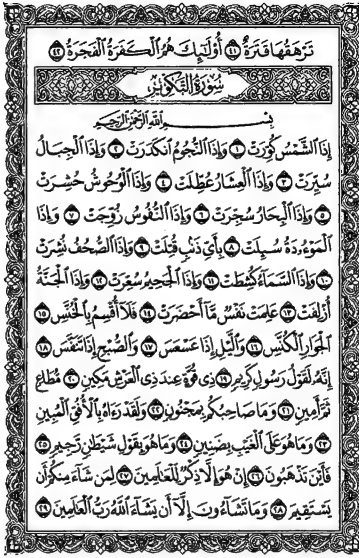 تَرْهَقُهَا قَتَرَةٌ ٤١ أُولَٰئِكَ هُمُ الْكَفَرَةُ الْفَجَرَةُ ٤٢
سُورَةُ التَّكْوِيرِ
بِسْمِ اللَّهِ الرَّحْمَٰنِ الرَّحِيمِ
إِذَا الشَّمْسُ كُوِّرَتْ ١ وَإِذَا النُّجُومُ انكَدَرَتْ ٢ وَإِذَا الْجِبَالُ
سُيِّرَتْ ٣ وَإِذَا الْعِشَارُ عُطِّلَتْ ٤ وَإِذَا الْوُحُوشُ حُشِرَتْ
٥ وَإِذَا الْبِحَارُ سُجِّرَتْ ٦ وَإِذَا النُّفُوسُ زُوِّجَتْ ٧ وَإِذَا
الْمَوْءُودَةُ سُئِلَتْ ٨ بِأَيِّ ذَنبٍ قُتِلَتْ ٩ وَإِذَا الصُّحُفُ نُشِرَتْ
١٠ وَإِذَا السَّمَاءُ كُشِطَتْ ١١ وَإِذَا الْجَحِيمُ سُعِّرَتْ ١٢ وَإِذَا الْجَنَّةُ
أُزْلِفَتْ ١٣ عَلِمَتْ نَفْسٌ مَّا أَحْضَرَتْ ١٤ فَلَا أُقْسِمُ بِالْخُنَّسِ ١٥
الْجَوَارِ الْكُنَّسِ ١٦ وَاللَّيْلِ إِذَا عَسْعَسَ ١٧ وَالصُّبْحِ إِذَا تَنَفَّسَ ١٨
إِنَّهُ لَقَوْلُ رَسُولٍ كَرِيمٍ ١٩ ذِي قُوَّةٍ عِندَ ذِي الْعَرْشِ مَكِينٍ ٢٠ مُّطَاعٍ
ثَمَّ أَمِينٍ ٢١ وَمَا صَاحِبُكُم بِمَجْنُونٍ ٢٢ وَلَقَدْ رَءَاهُ بِالْأُفُقِ الْمُبِينِ
٢٣ وَمَا هُوَ عَلَى الْغَيْبِ بِضَنِينٍ ٢٤ وَمَا هُوَ بِقَوْلِ شَيْطَانٍ رَّجِيمٍ ٢٥
فَأَيْنَ تَذْهَبُونَ ٢٦ إِنْ هُوَ إِلَّا ذِكْرٌ لِّلْعَالَمِينَ ٢٧ لِمَن شَاءَ مِنكُمْ أَن
يَسْتَقِيمَ ٢٨ وَمَا تَشَاءُونَ إِلَّا أَن يَشَاءَ اللَّهُ رَبُّ الْعَالَمِينَ ٢٩